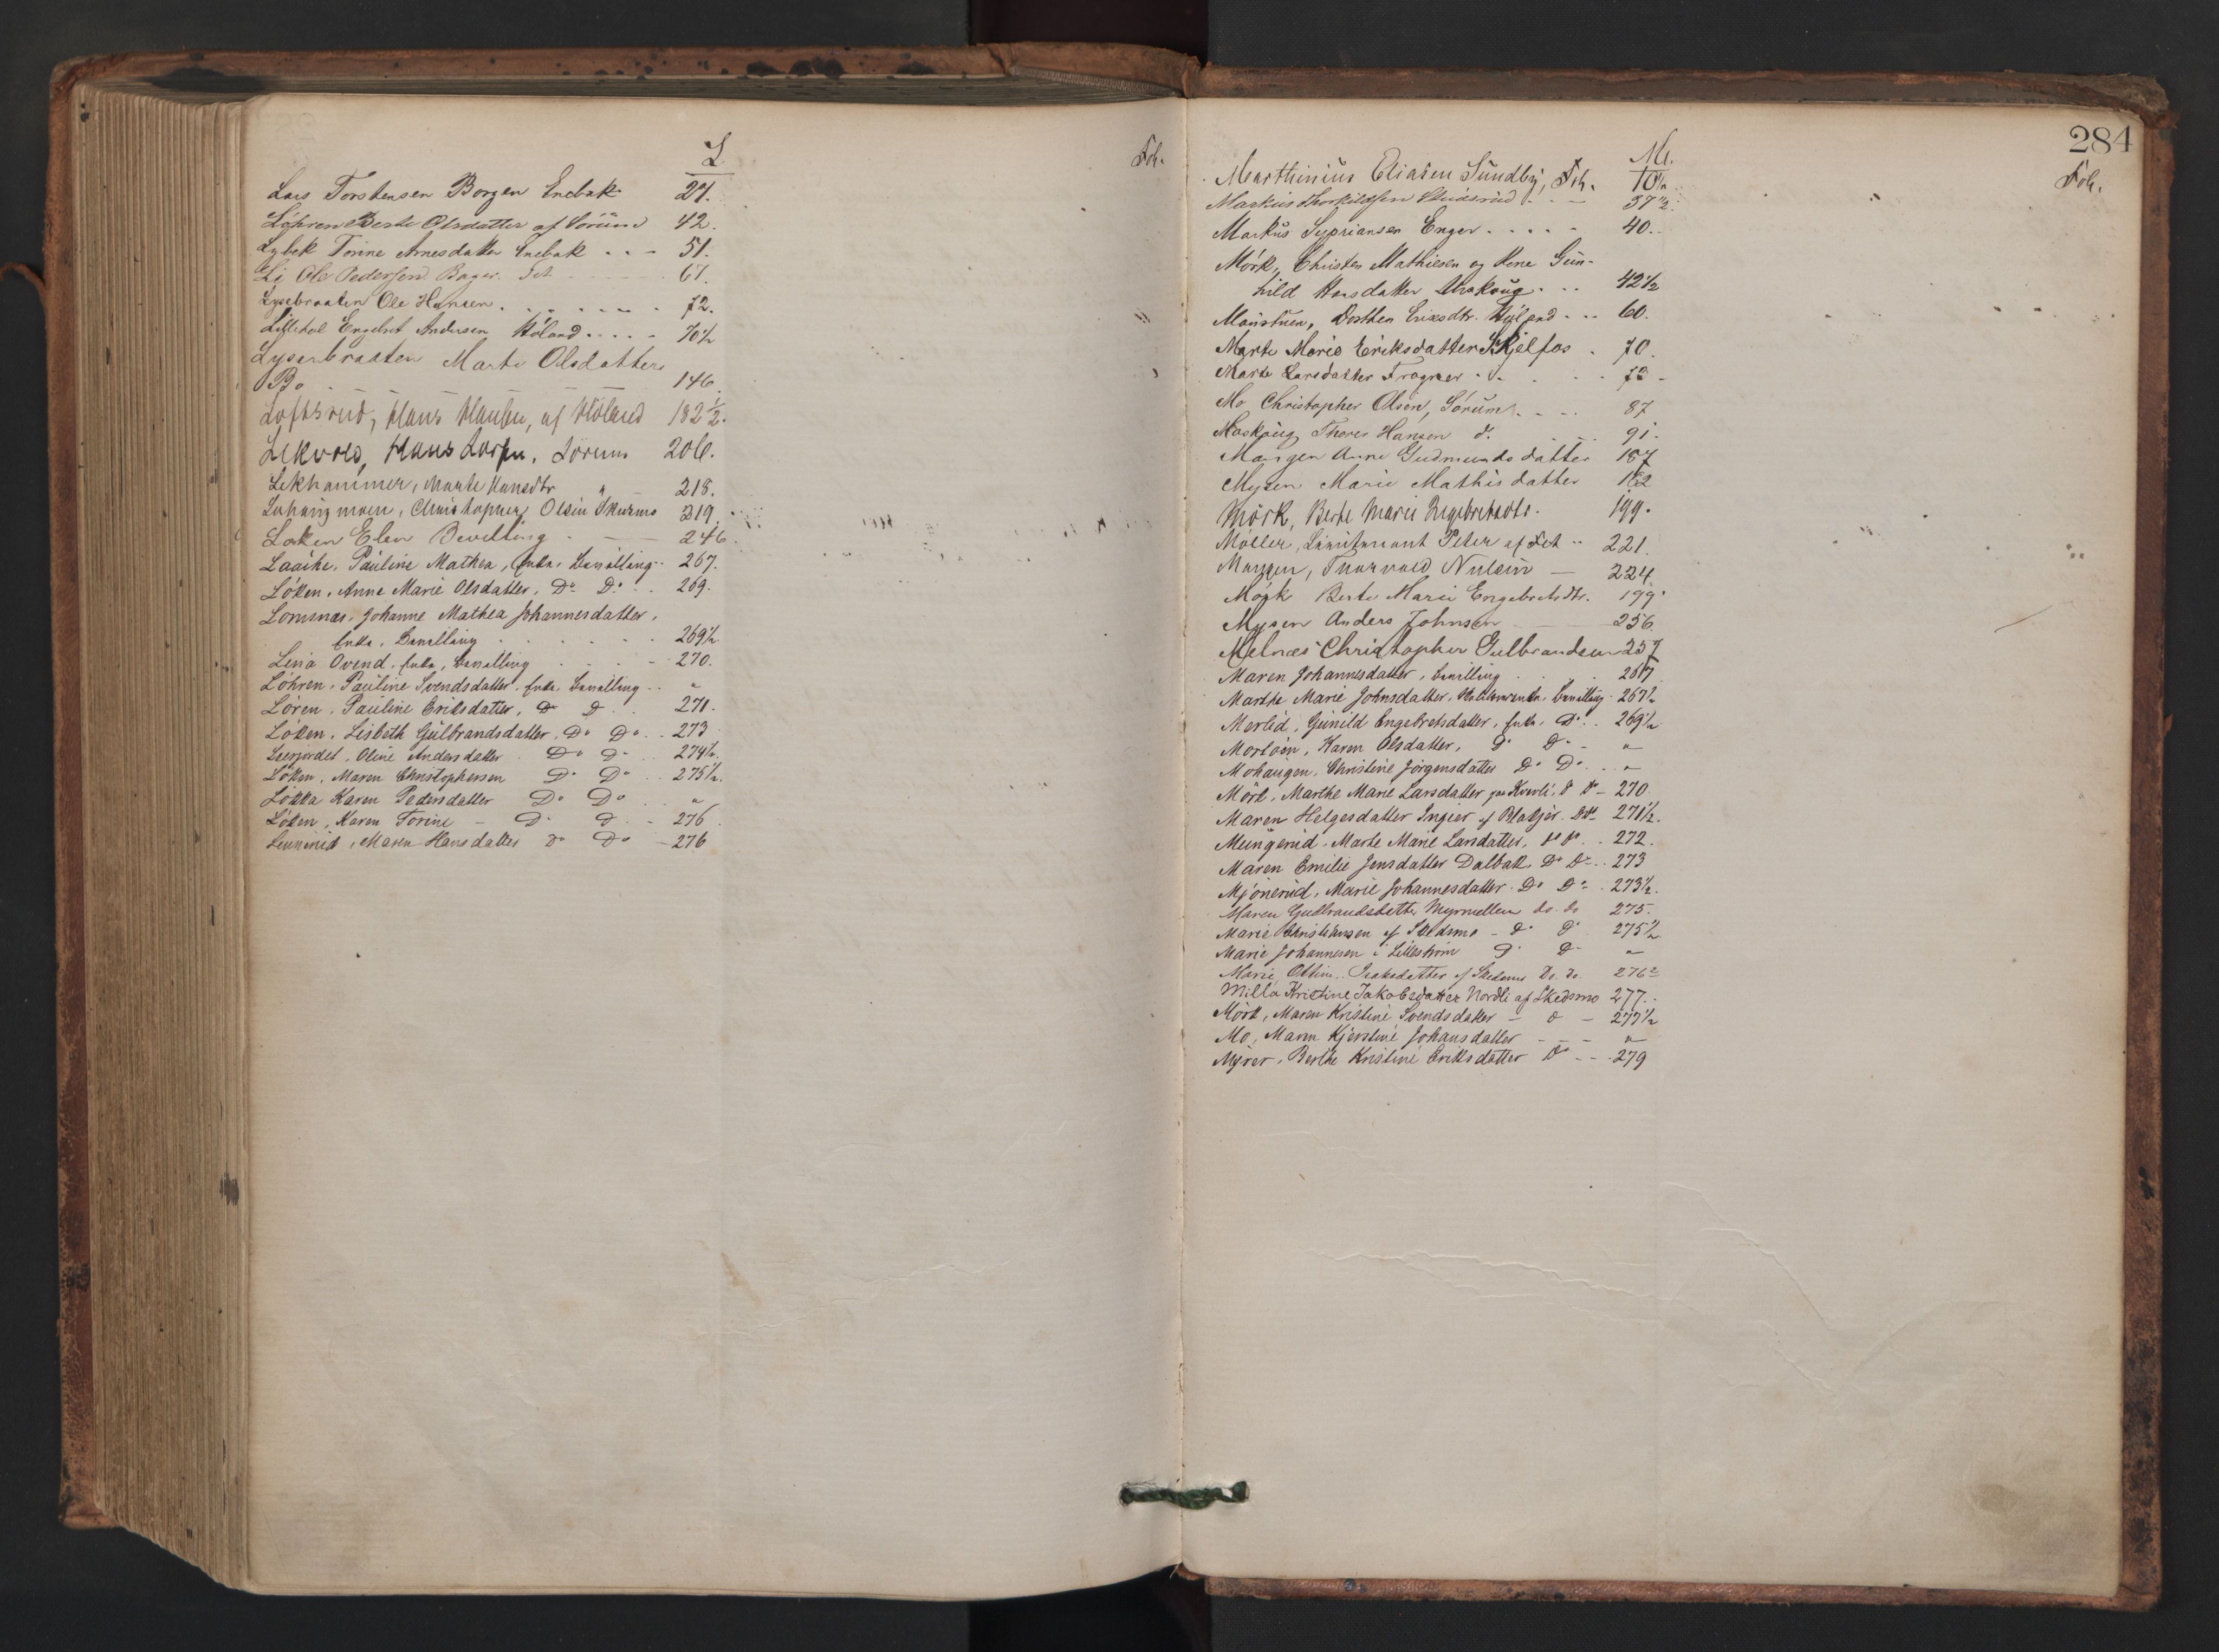 L
Fol.
Lars Torstensen Borgen Enebak 21.
Löhren Berte Olsdatter af Sörum 42.
Lybek Torine Arnesdatter Enebak . . - 51.
Li Ole Pedersen Fet 67.
Lysebraaten Ole Hansen . . . 72.
Engebret Andersen Höland . . . . 70½
Lysenbraaten Marte Olsdatter
Bo 146.
Loftsrud, Hans Hansen, af Höland 182½.
Lekvold, Hans Larsen, Sörum 206.
Lekhammer, Marte Hansdtr " 218.
Christopher Olsen 219.
Løken Elen Bevilling - 246.
Laache, Pauline Mathea, Enke, Bevilling 267.
Löken, Anne Marie Olsdatter, Do Do . . 269.
Lomsnæs, Johanne Mathea Johannesdatter,
Enke, Bevilling . . . . 269½
Ovend, Enke, Bevilling . . . - 270.
Löhren, Pauline Svendsdatter, Enke, Bevilling . . "
Lören, Pauline Eriksdatter, Do Do . . 271.
Löken, Lisbeth Gulbrandsdatter, Do Do . . 273
Oline Andersdatter Do Do - 274½.
Löken, Maren Christophersen Do Do . . 275½.
Lökka Karen Pedersdatter Do Do . . "
Löken, Karen Torine - Do Do . - 276.
Maren Hansdatter Do Do - 276
284
M.
Fol.
Marthinius Eliasen Sundby, Feh. 10½
Markus Thorkildsen - - - 37½.
Markus Sypriansen Enger . . . . - 40.
Mörk, Christen Mathiesen og Kone Gun-
hild Hansdatter . . . 42½
Dorthea Eriksdtr. Höland . . . 60.
Marte Marie Eriksdatter Kjelfos . 70.
Marte Larsdatter Frogner . . . . 73 -
Mo Christopher Olsen, Sörum . - . . 87
Thorer Hansen d. . . . 91.
Mangen Anne Gudmundsdatter 157
Mysen Marie Mathisdatter 182
Mörk, Berte Marie Engebretsdtr. 199.
Møller, Lieutenant Peter af Fet . . 221.
Mangen, Thorvald Nielsen — 224.
Mörk Berte Marie Engebretsdtr. 199.
Mysen Anders Johnsen — 256
Melnæs Christopher Gulbrandsen 257
Maren Johannesdatter, Bevilling . . . 267
Marthe Marie Johnsdatter, Bevilling . 267½
Merlid, Gunild Engebretsdatter, Enke, Do . . 269½
Karen Olsdatter, Do Do - - "
Mohaugen, Christine Jörgensdatter Do Do . . . "
Mörk, Marthe Marie Larsdatter Do Do - 270
Maren Helgesdatter Ingier af Blakjer. DoDo 271½.
Marte Marie Larsdatter, Do Do . . 272.
Maren Emilie Jensdatter Dalbak Do Do . . 273
Mjönerud, Marie Johannesdatter . Do Do . 273½.
Maren Gudbrandsdatter do. do 275.
Marie Christiansen af Skedsmo - Do Do 275½.
Marie Johannesen i Lilleström Do Do "
Marie Isaksdatter af Skedsmo Do. do. 276
Milla Kristine Jakobsdatter Nordli af Skedsmo 277. .
Mörk, Maren Kristine Svendsdatter - Do - 277½
Mo, Maren Kjerstine Johansdatter - - - "
Myrer, Berthe Kristine Eriksdatter Do - - . 279